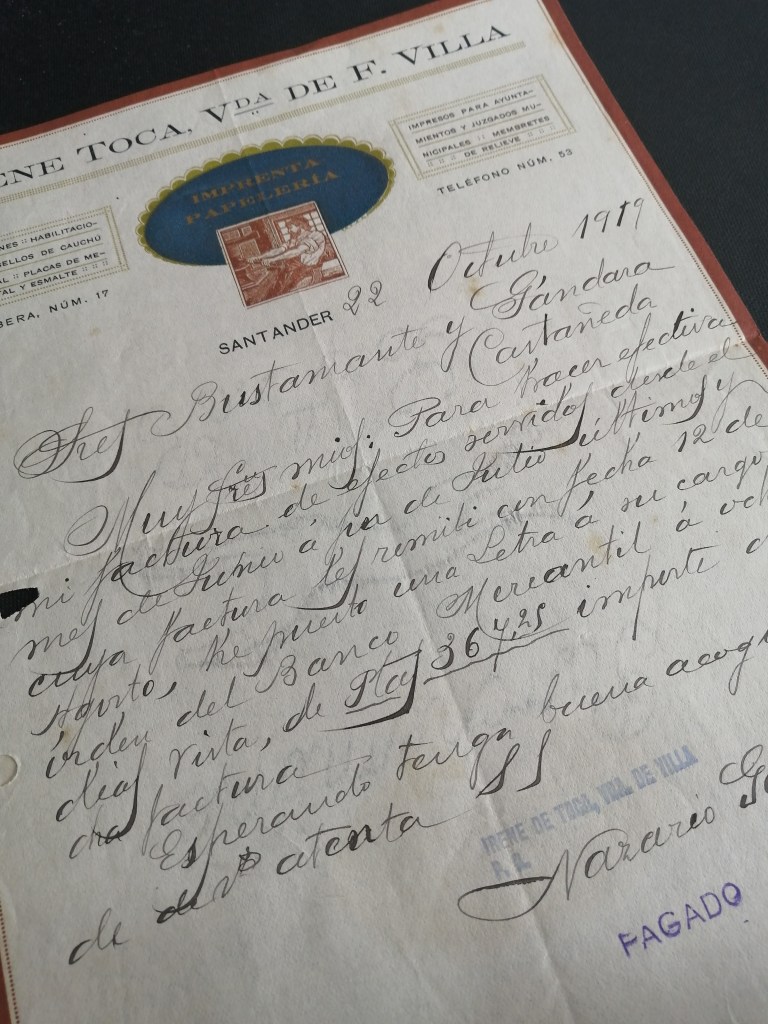 ENE TOCA, VDA DE F. VILLA
IMPRENTA
PAPELERÍA
IMPRESOS PARA AYUNTA-
MIENTOS Y JUZGADOS MU-
NICIPALES :: MEMBRETES
DE RELIEVE
TELÉFONO NÚM. 53
NES :: HABILITACIO-
SELLOS DE CAUCHÚ
AL :: PLACAS DE ME-
TAL Y ESMALTE
BERA, NÚM. 17
SANTANDER 22 Octubre 1919
Sres Bustamante y Gándara
Castañeda
Muy Sres mios: Para hacer efectiva
mi factura de efectos servidos desde el
mes de Junio á fin de Julio últimos y
cuya factura les remití con fecha 12 de
Agosto, he puesto una Letra á su cargo
órden del Banco Mercantil á och
dias vista, de Ptas 367,25 importe d
dha factura
Esperando tenga buena acogi
de Vs atenta SS
IRENE DE TOCA, VDA. DE VILLA
P. A.
Nazario
PAGADO